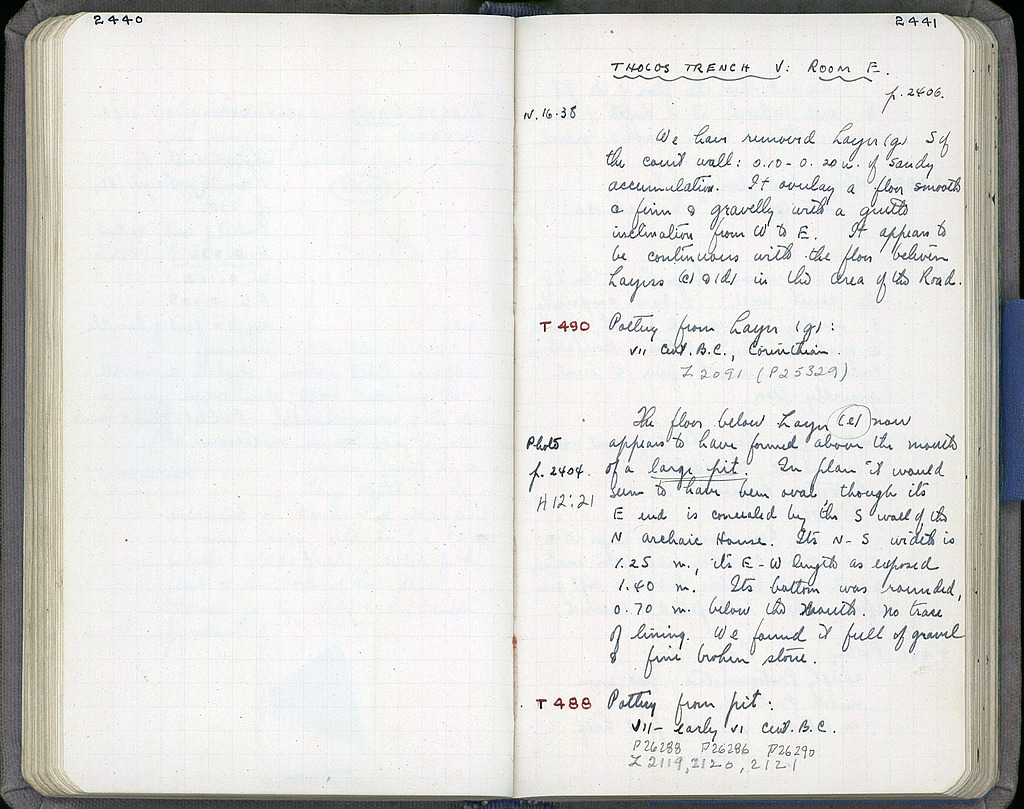 2440
2441
THOLOS TRENCH V: ROOM E.
p. 2406.
IV.16.38
We have removed Layer (g) S of
the court wall: 0.10 - 0.20 m. of sandy
accumulation. It overlay a floor smooth
& firm & gravelly with a gentle
inclination from W to E. It appears to
be continuous with the floor between
Layers (c) & (d) in the area of the Road.
T 490 Pottery from Layer (g):
VII cent. B.C., Corinthian.
Z 2091 (P25329)
The floor below Layer (e) now
Photo
appears to have formed above the mouth
p. 2404.
of a large pit. In plan it would
H12:21
seem to have been oval, though its
E end is concealed by the S wall of the
N archaic House. Its N-S width is
1.25 m., its E-W length as exposed
1.40 m. Its bottom was rounded,
0.70 m. below the mouth. No trace
of lining. We found it full of gravel
& fine broken stone.
T 488 Pottery from pit.
VII - early VI cent. B.C.
P26288 P26286 P26290
Z 2119, 2120, 2121